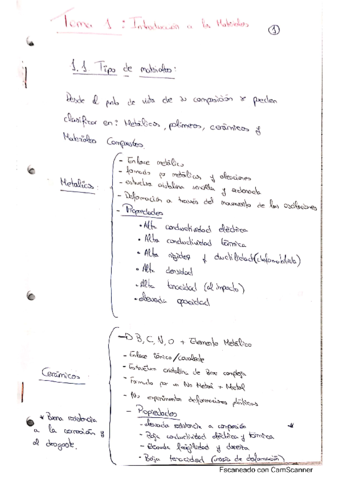 Tema 1: Introducción a los Materiales
1
1.1 Tipo de materiales:
Desde el punto de vista de su composición se pueden
clasificar en: Metálicos, polímeros, cerámicos y
Materiales Compuestos
- Enlace metálico
- formado por metálicos y aleaciones
- estructura cristalina sencilla y ordenada
Metálicos
- Deformación a través del movimiento de las
- Propiedades
• Alta conductividad eléctrica
• Alta conductividad térmica
• Alta rigidez y ductilidad
• Alta densidad
• Alta tenacidad (al impacto)
• elevada opacidad
→ B, C, N, O + Elemento Metálico
- Enlace iónico/covalente
- Estructura cristalina de base compleja
Cerámicos
- Formado por un No Metal + Metal
- No experimenta deformaciones plásticas
- Propiedades
* Buena resistencia
a la corrosión y
al desgaste.
• elevada resistencia a compresión
• Baja conductividad eléctrica y térmica
• Elevada fragilidad y dureza
• Baja tenacidad
Escaneado con CamScanner